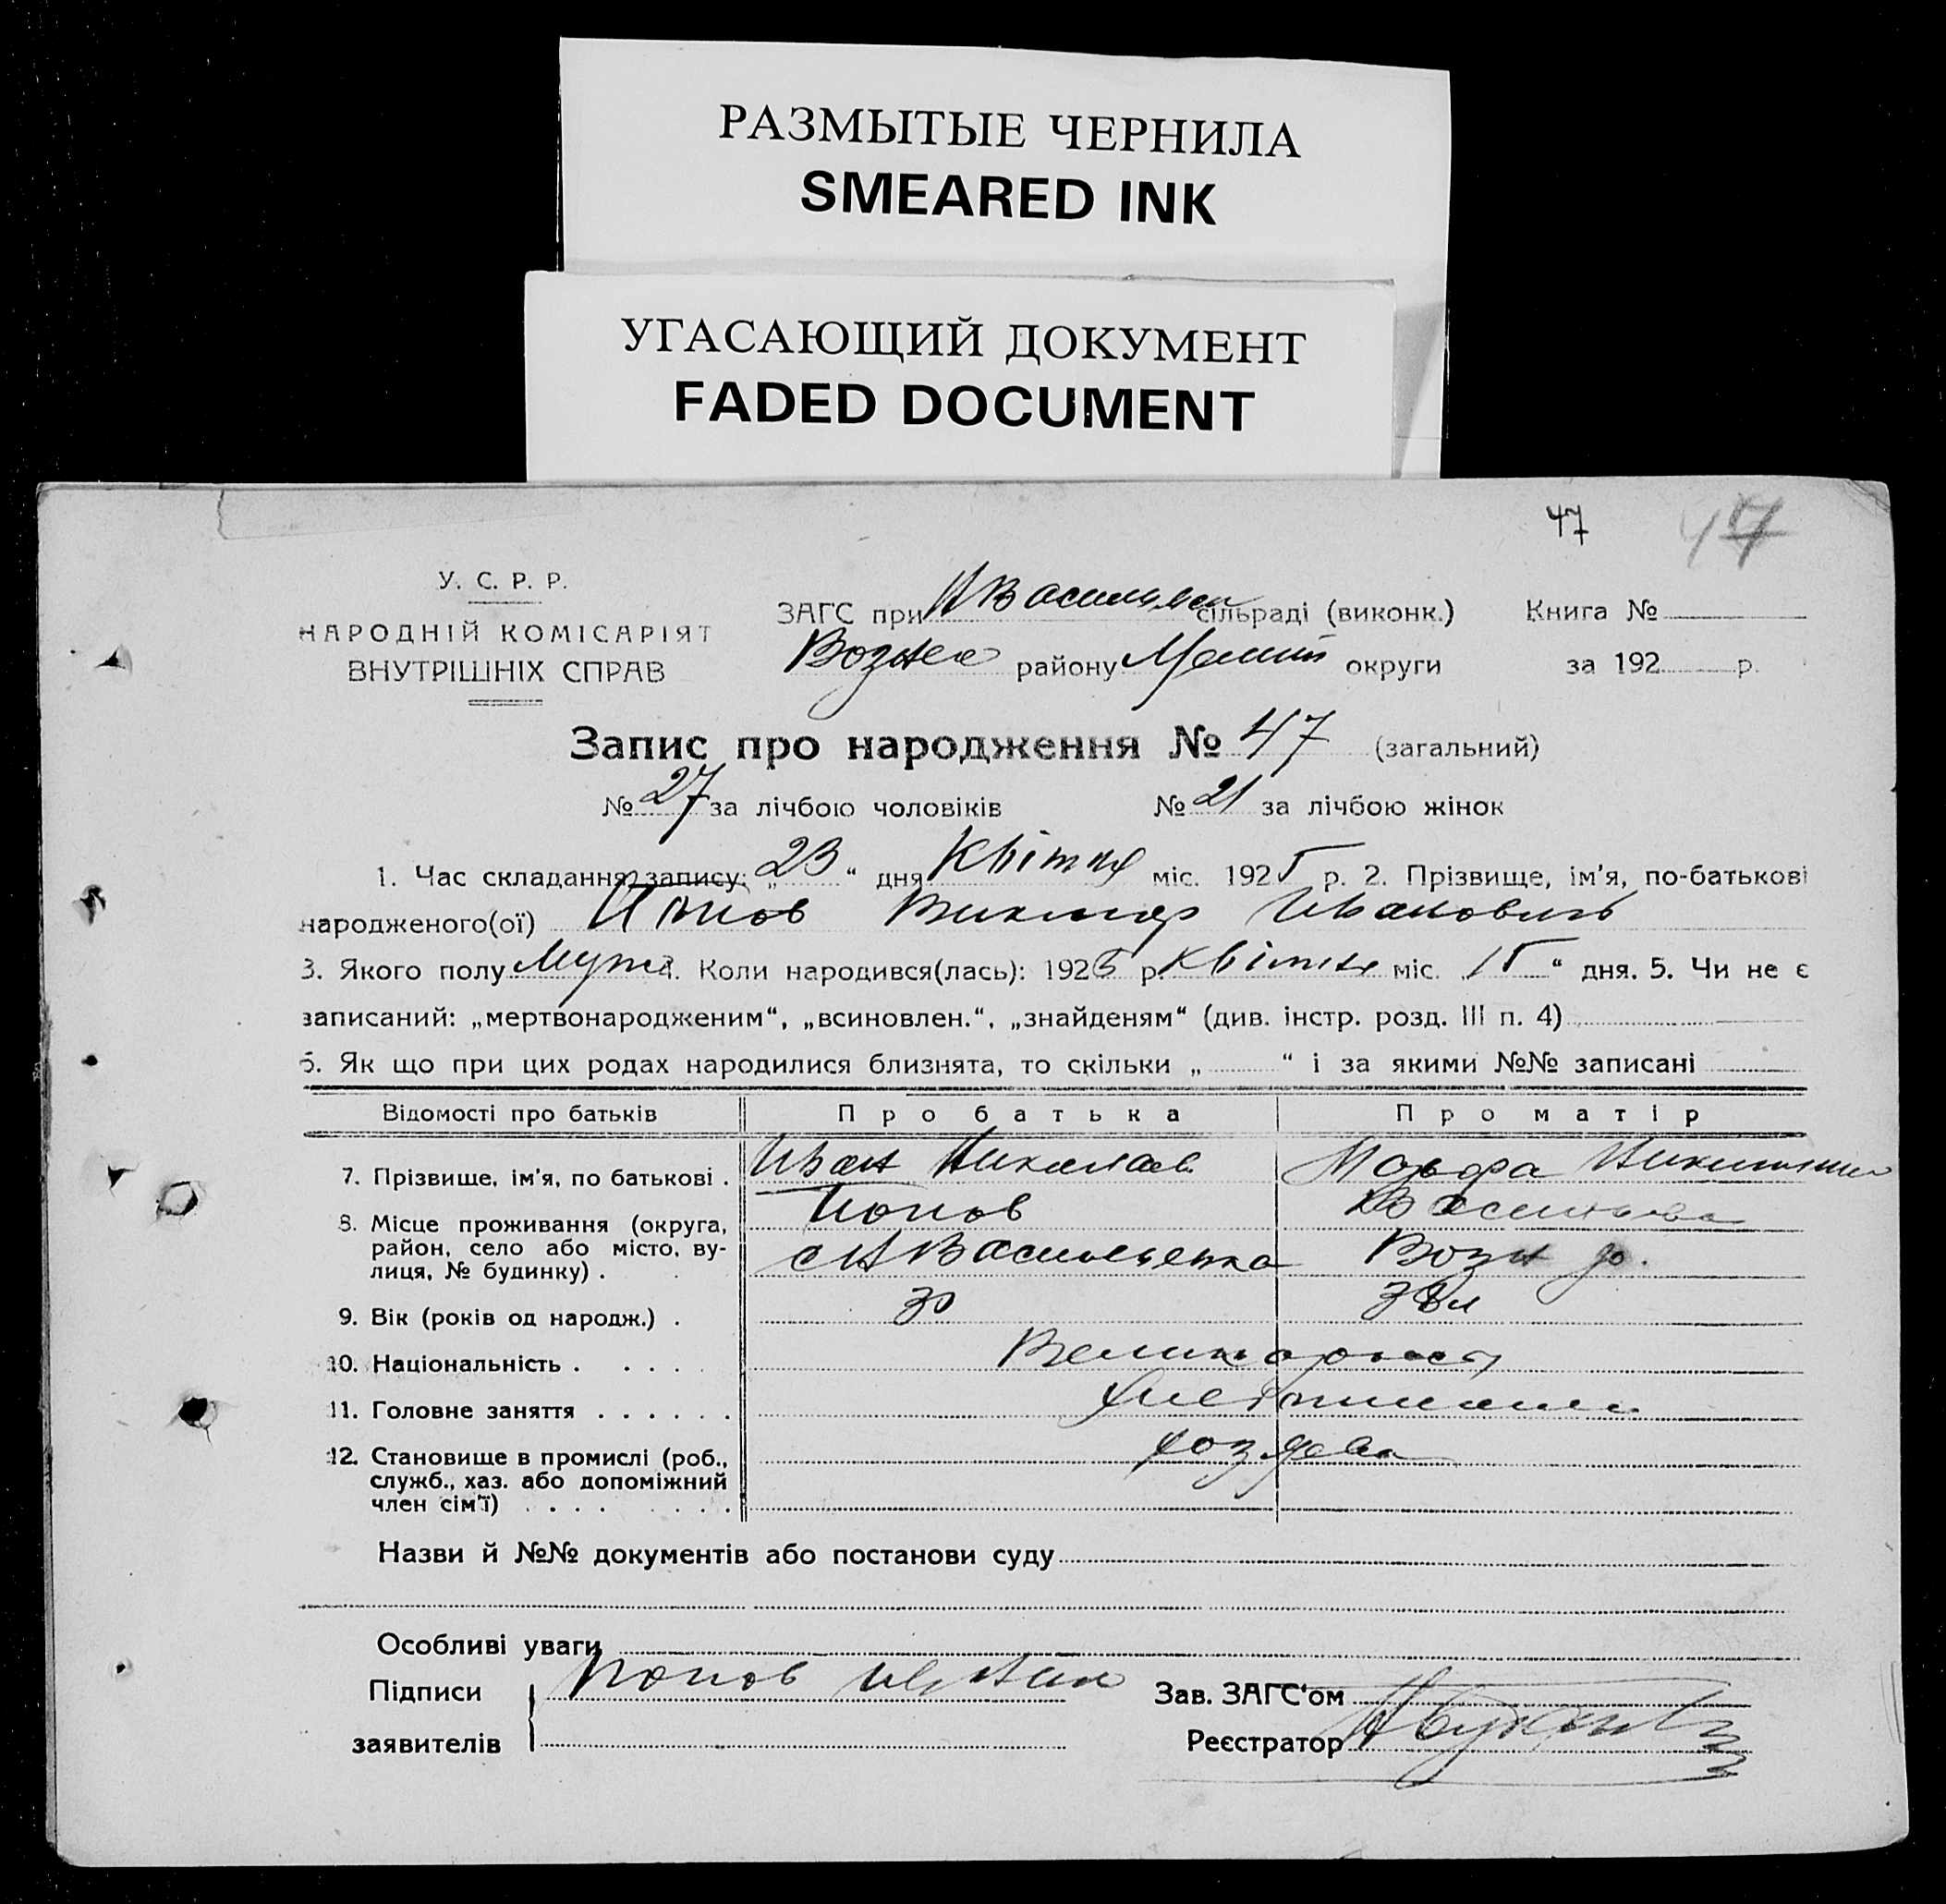 РАЗМЫТЫЕ ЧЕРНИЛА
SMEARED INK
УГАСАЮЩИЙ ДОКУМЕНТ
FADED DOCUMENT
47 47
У. С. Р. Р.
НАРОДНІЙ КОМІСАРІЯТ
ВНУТРІШНІХ СПРАВ
ЗАГС при сільраді (виконк.) Книга №
району округи за 192 р.
Запис про народження № 47 (загальний)
№ 27 за лічбою чоловіків № 21 за лічбою жінок
1. Час складання запису: „ 23 “ дня Квітня міс. 1925 р. 2. Прізвище, ім'я, по-батькові
народженого(ої) Попов Виктор Иванович
3. Якого полу Муж 4. Коли народився(лась): 1925 р. Квітня міс. 15 “ дня. 5. Чи не є
записаний: „мертвонародженим“, „всиновлен.“, „знайденям“ (див. інстр. розд. III п. 4)
6. Як що при цих родах народилися близнята, то скільки „ “ і за якими №№ записані
Відомості про батьків Про батька Про матір
7. Прізвище, ім'я, по батькові . Иван Николаев Марфа
Попов
8. Місце проживання (округа,
район, село або місто, ву-
лиця, № будинку) .
9. Вік (років од народж.) . 30
10. Національність . . . . .
11. Головне заняття . . . . . .
12. Становище в промислі (роб.,
служб., хаз. або допоміжний
член сім'ї) . . . . . . . .
Назви й №№ документів або постанови суду
Особливі уваги
Підписи Попов Иван Зав. ЗАГС'ом
заявителів Реєстратор